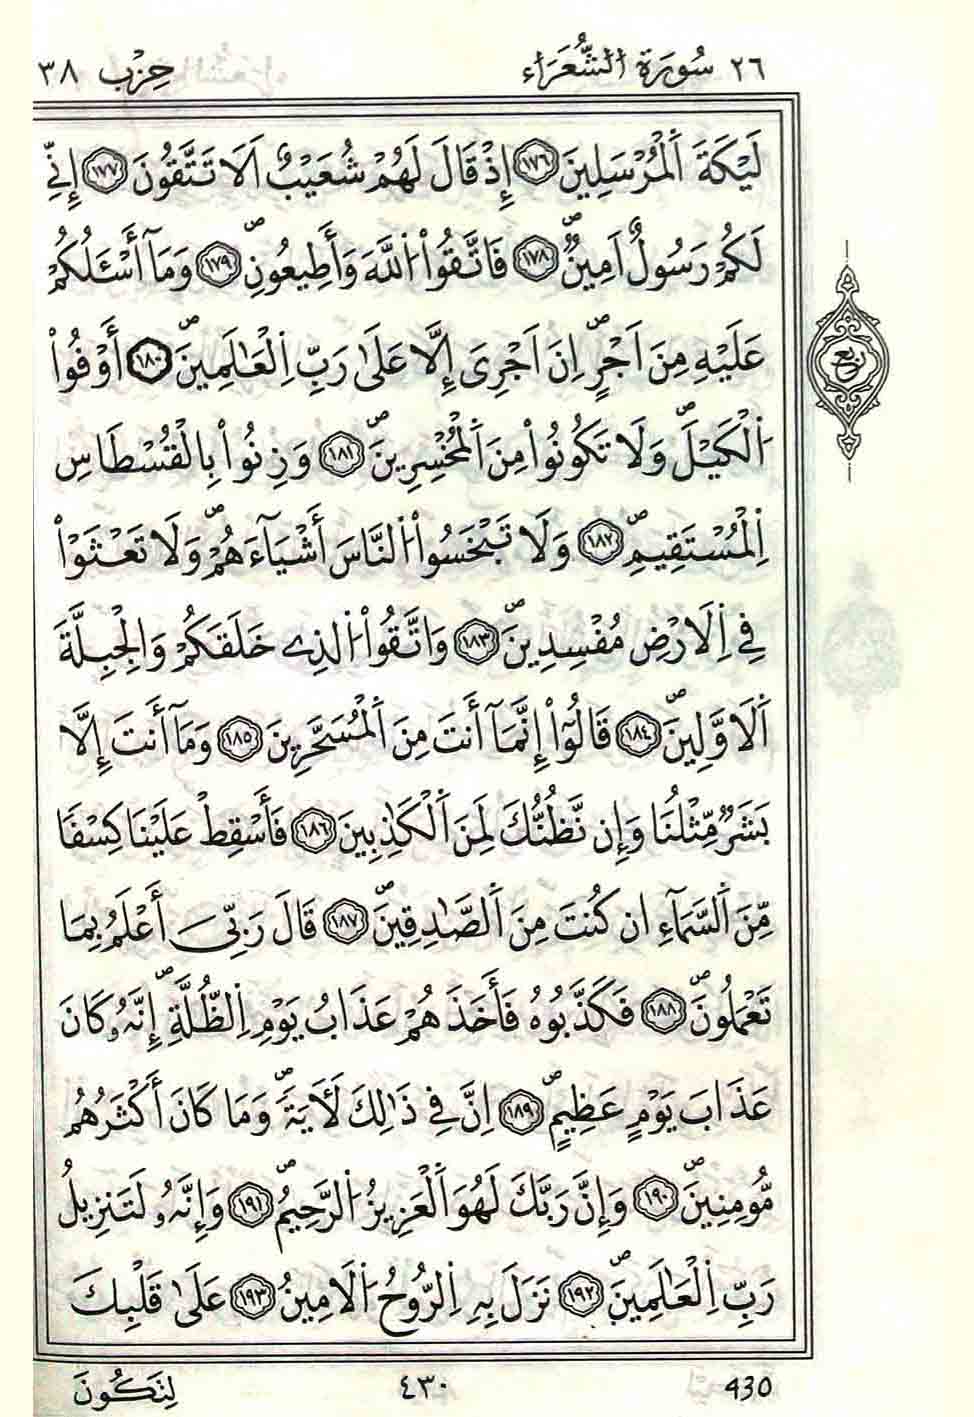 ٢٦ سُورَةُ الشُّعَرَاء حِزْب ٣٨
لَيْكَةَ اَ۬لْمُرْسَلِينَ ١٧٦ إِذْ قَالَ لَهُمْ شُعَيْبٌ اَلَا تَتَّقُونَ ١٧٧ إِنِّے
لَكُمْ رَسُولٌ اَمِينٌ ١٧٨ فَاتَّقُواْ اُ۬للَّهَ وَأَطِيعُونِ ١٧٩ وَمَآ أَسْـَٔلُكُمْ
عَلَيْهِ مِنَ اَجْرٍ اِنَ اَجْرِيَ إِلَّا عَلَىٰ رَبِّ اِ۬لْعَٰلَمِينَ ١٨٠ أَوْفُواْ
اُ۬لْكَيْلَ وَلَا تَكُونُواْ مِنَ اَ۬لْمُخْسِرِينَ ١٨١ وَزِنُواْ بِالْقُسْطَاسِ
اِ۬لْمُسْتَقِيمِ ١٨٢ وَلَا تَبْخَسُواْ اُ۬لنَّاسَ أَشْيَآءَهُمْ وَلَا تَعْثَوْاْ
فِے اِ۬لَارْضِ مُفْسِدِينَ ١٨٣ وَاتَّقُواْ اُ۬لذِے خَلَقَكُمْ وَالْجِبِلَّةَ
اَ۬لَاوَّلِينَ ١٨٤ قَالُوٓاْ إِنَّمَآ أَنتَ مِنَ اَ۬لْمُسَحَّرِينَ ١٨٥ وَمَآ أَنتَ إِلَّا
بَشَرٌ مِّثْلُنَا وَإِن نَّظُنُّكَ لَمِنَ اَ۬لْكَٰذِبِينَ ١٨٦ فَأَسْقِطْ عَلَيْنَا كِسْفًا
مِّنَ اَ۬لسَّمَآءِ ان كُنتَ مِنَ اَ۬لصَّٰدِقِينَ ١٨٧ قَالَ رَبِّيَ أَعْلَمُ بِمَا
تَعْمَلُونَ ١٨٨ فَكَذَّبُوهُ فَأَخَذَهُمْ عَذَابُ يَوْمِ اِ۬لظُّلَّةِ إِنَّهُۥ كَانَ
عَذَابَ يَوْمٍ عَظِيمٍ ١٨٩ اِنَّ فِے ذَٰلِكَ لَأٓيَةً وَمَا كَانَ أَكْثَرُهُم
مُّومِنِينَ ١٩٠ وَإِنَّ رَبَّكَ لَهُوَ اَ۬لْعَزِيزُ اُ۬لرَّحِيمُ ١٩١ وَإِنَّهُۥ لَتَنزِيلُ
رَبِّ اِ۬لْعَٰلَمِينَ ١٩٢ نَزَلَ بِهِ اِ۬لرُّوحُ اُ۬لَامِينُ ١٩٣ عَلَىٰ قَلْبِكَ
ربع
430 ٤٣٠ لِتَكُونَ